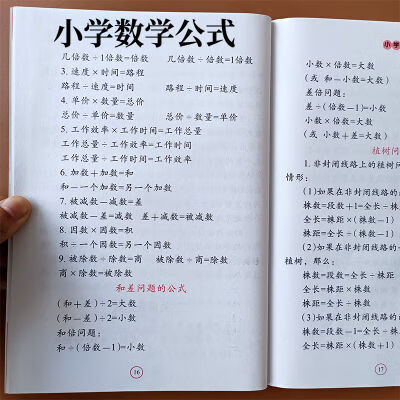 小学数学公式
几倍数÷1倍数=倍数 几倍数÷倍数=1倍数
3. 速度×时间=路程
路程÷速度=时间 路程÷时间=速度
4. 单价×数量=总价
总价÷单价=数量 总价÷数量=单价
5. 工作效率×工作时间=工作总量
工作总量÷工作效率=工作时间
工作总量÷工作时间=工作效率
6. 加数+加数=和
和-一个加数=另一个加数
7. 被减数-减数=差
被减数-差=减数 差+减数=被减数
8. 因数×因数=积
积÷一个因数=另一个因数
9. 被除数÷除数=商 被除数÷商=除数
商×除数=被除数
和差问题的公式
(和+差)÷2=大数
(和-差)÷2=小数
和倍问题:
和÷(倍数-1)=小数
16
小学
小数×倍数=大数
(或 和-小数=大数)
差倍问题:
差÷(倍数-1)=小数
小数×倍数=大数
(或 小数+差=大数)
植树问
1. 非封闭线路上的植树问
情形:
(1)如果在非封闭线路的
株数=段数+1=全长÷株
全长=株距×(株数-1)
株距=全长÷(株数-1)
(2)如果在非封闭线路的
植树,那么:
株数=段数=全长÷株距
全长=株距×株数
株距=全长÷株数
(3)如果在非封闭线路的
株数=段数-1=全长÷
全长=株距×(株数+1)
17